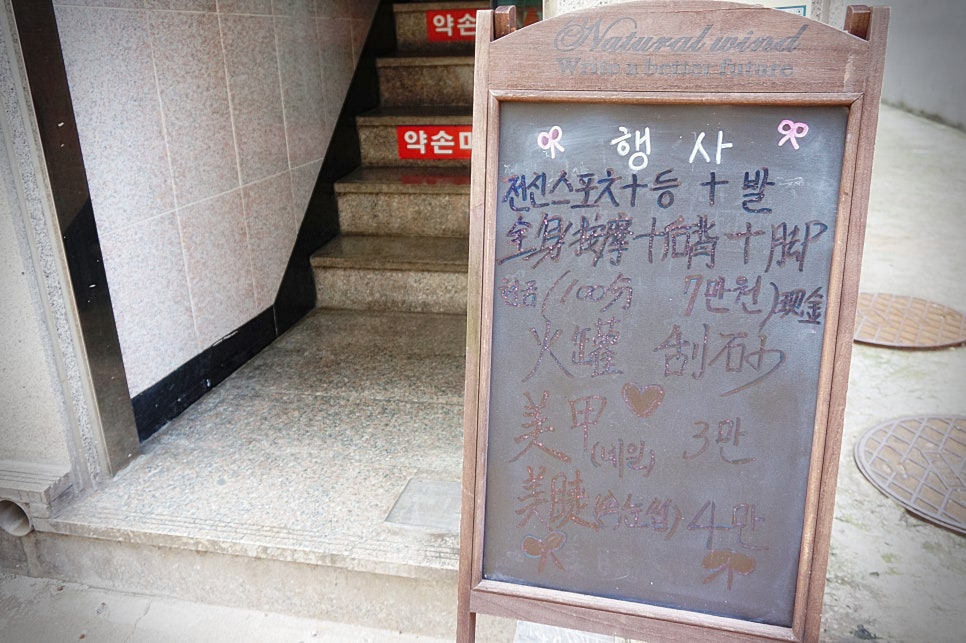 약손
약손
Natural wind
Write a better future
행 사
전신스포츠+등 + 발
全身按摩+后背+脚
현금 (100分 7만원) 现金
火罐 刮石少
美甲 (네일) 3만
美睫 (속눈썹) 4만